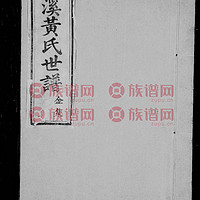 溪黃氏世譜
金集
族谱网
族谱网
族谱网
族谱网